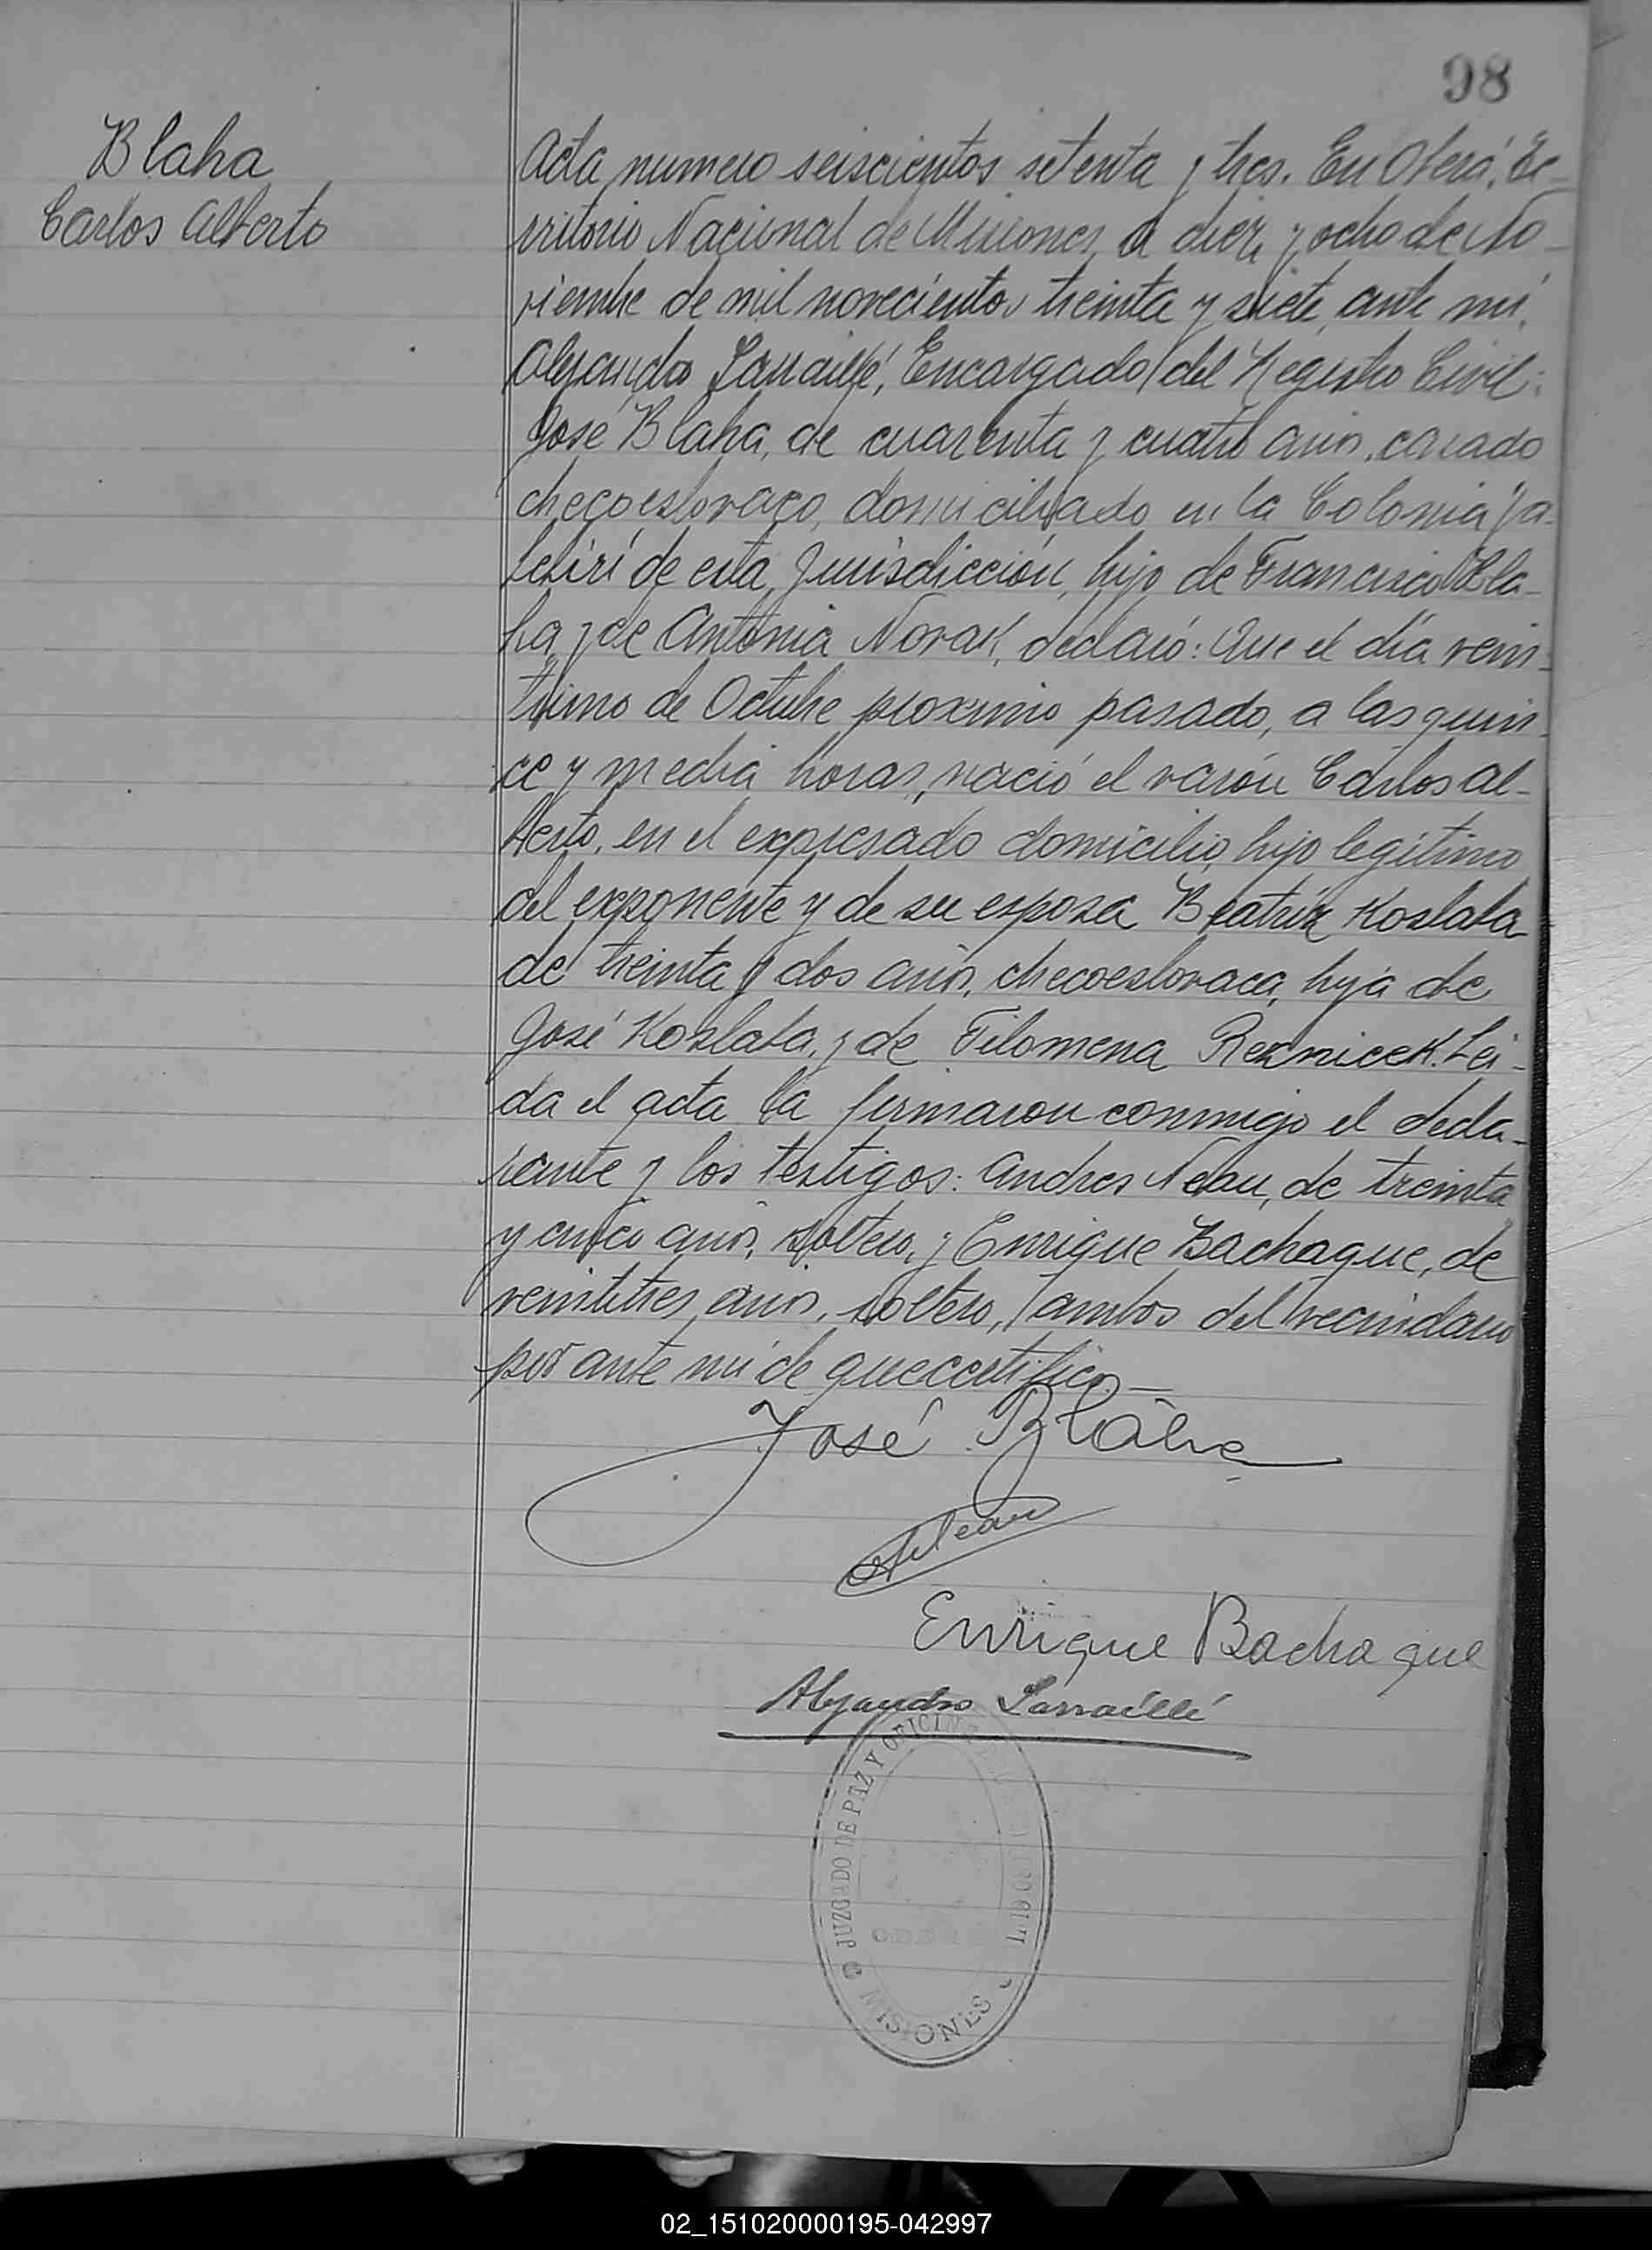 98
Blaha
Carlos Alberto
Acta numero seiscientos setenta y tres. En Oberá, Te-
rritorio Nacional de Misiones, a diez y ocho de No-
viembre de mil novecientos treinta y siete, ante mí,
Alejandro Larraillé, Encargado del Registro Civil:
José Blaha, de cuarenta y cuatro años, casado
checoeslovaco, domiciliado en la Colonia Ya-
bebirí de esta Jurisdicción, hijo de Francisco Bla-
ha y de Antonia Novak, declaró: Que el día vein-
tiuno de Octubre proximo pasado, a las quin-
ce y media horas, nació el varón Carlos Al-
berto, en el expresado domicilio, hijo legítimo
del exponente y de su esposa Beatriz Koslata
de treinta y dos años, checoeslovaca, hija de
José Koslata, y de Filomena Reznicek. Lei-
da el acta la firmaron conmigo el decla-
rante y los testigos: Andres Neau, de treinta
y cinco años, soltero, y Enrique Bachaque, de
veintitres años, soltero, ambos del vecindario
por ante mí de que certifico.—
José Blaha
ANeau
Enrique Bachaque
Alejandro Larraillé
JUZGADO DE PAZ Y OFICINA
MISIONES
02_151020000195-042997